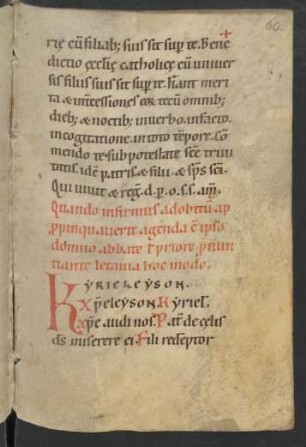 60.
rię cū filiab; suis sit sup te. Bene
dictio ęcclię catholicę cū univer
sis filiis suis sit sup te. hant meri
ta & int̄cessiones eoꝝ tecū omnib;
dieb; & noctib; in uerbo. in facto.
in cogitatione. in toto tēpore. Cō
mendo te sub potestate scē trini
tatis. idē patris. & filii. & sp̄s sc̄i.
Qui uiuit & reg̅. d. p. o. s. s. am̄.
Quando infirmus ad obitū ap
ppinquauerit agenda ē ipso
domno abbate ł priore p̄nun
tiante letania hoc modo.
KYRIELEYSON.
Xp̄eleyson. Kyriel.
Xp̄e audi nos. Pat̄ de cęlis
ds̄ miserere ei. Fili redēptor